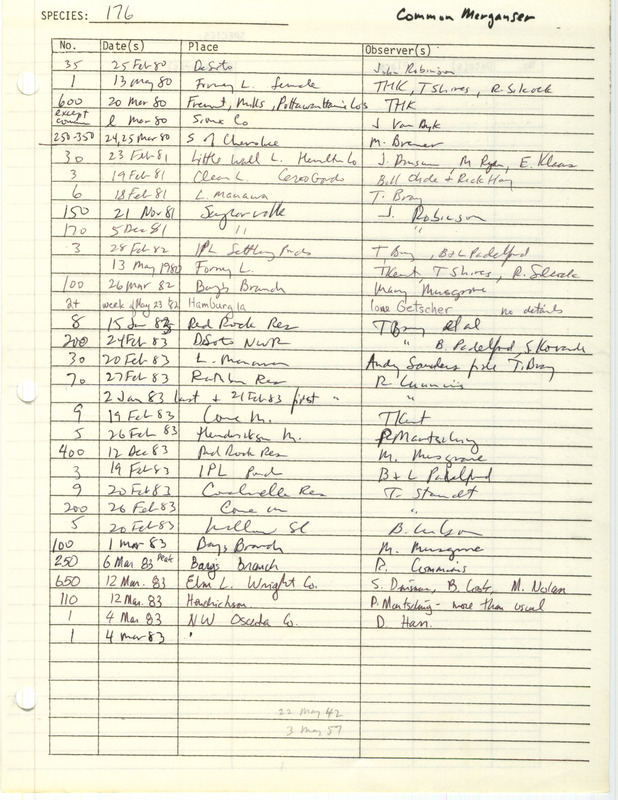 SPECIES: 176 Common Merganser
No. Date(s) Place Observer(s)
35 25 Feb 80 DeSoto John Robinson
1 13 May 80 Forney L. female THK, T Shires, R. Silcock
600 20 Mar 80 Fremt, Mills, Pottawattamie Co's THK
except 2 Mar 80 Sioux Co J Van Dyk
250-350 24,25 Mar 80 S of Cherokee M. Brewer
30 23 Feb 81 Little Wall L. Hamilton Co J. Dinsmore, M Ryan, E. Klaas
3 19 Feb 81 Clear L. Cerro Gordo Bill Clyde + Rick Hay
6 18 Feb 81 L. Manawa T. Bray
150 21 Nov 81 Saylorville J. Robinson
170 5 Dec 81 " "
3 28 Feb 82 IPL Settling Ponds T. Bray, B+L Padelford
13 May 1980 Forney L. TKent, T Shires, R. Silcock
100 26 Mar 82 Bays Branch Mary Musgrove
2+ week of May 23 '82 Hamburg Ia Ione Getscher no details
8 15 Jan 83 Red Rock Res T Bray et al
200 24 Feb 83 DeSoto NWR " B. Padelford, S Kovanda
30 20 Feb 83 L. Manawa Andy Saunders fide T. Bray
70 27 Feb 83 Rathbun Res R Cummins
2 Jan 83 last + 21 Feb 83 first " "
9 19 Feb 83 Cone M. TKent
5 26 Feb 83 Hendrickson M. P Martsching
400 12 Dec 83 Red Rock Res M. Musgrove
3 19 Feb 83 IPL Pond B+L Padelford
9 20 Feb 83 Coralville Res T. Staudt
200 26 Feb 83 Cone M "
5 20 Feb 83 Willow Sl B. Wilson
100 1 Mar 83 Bays Branch M. Musgrove
250 6 Mar 83 Peak Bays Branch R. Cummins
650 12 Mar. 83 Elm L. Wright Co. S. Dinsmore, B. M. Nolan
110 12 Mar. 83 Hendrickson P. Martsching - more than usual
1 4 Mar. 83 NW Osceola Co. D. Harr.
1 4 Mar 83 "
22 May 42
3 May 57